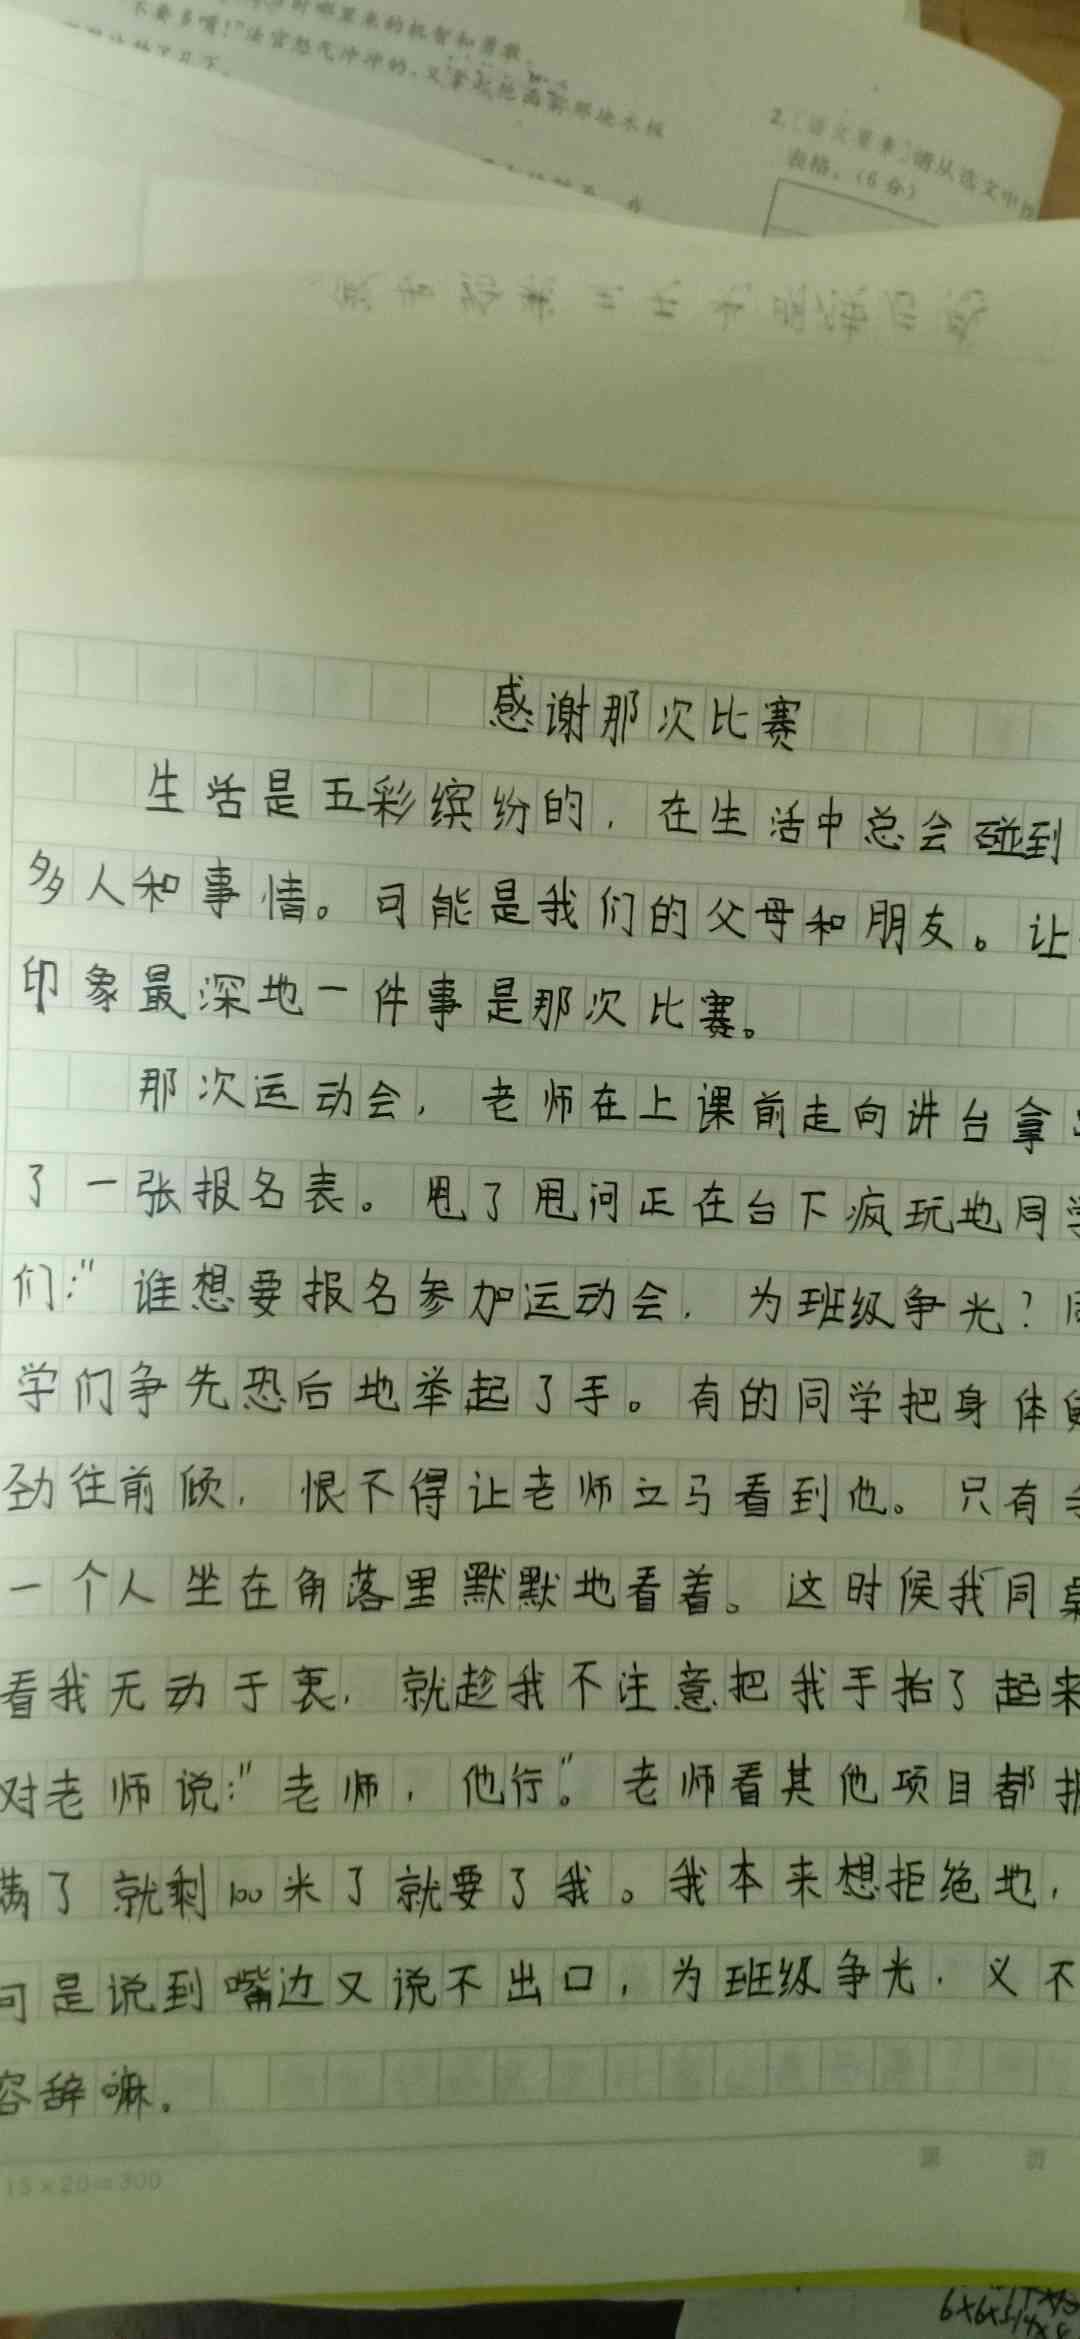 时哪里来的机智和勇敢。
不要多嘴!"法官怒气冲冲的,又拿起他面前那块木板
2.[语文要素]请从选文中
表格。(6分)
感谢那次比赛
生活是五彩缤纷的,在生活中总会碰到
多人和事情。可能是我们的父母和朋友。让
印象最深地一件事是那次比赛。
那次运动会,老师在上课前走向讲台拿
了一张报名表。甩了甩问正在台下疯玩地同学
们:"谁想要报名参加运动会,为班级争光?
学们争先恐后地举起了手。有的同学把身体
劲往前倾,恨不得让老师立马看到他。只有
一个人坐在角落里默默地看着。这时候我同桌
看我无动于衷,就趁我不注意把我手抬了起来
对老师说:"老师,他行"。老师看其他项目都报
满了就剩100米了就要了我。我本来想拒绝地,
可是说到嘴边又说不出口,为班级争光,义不
容辞嘛.
15×20=300
第 页